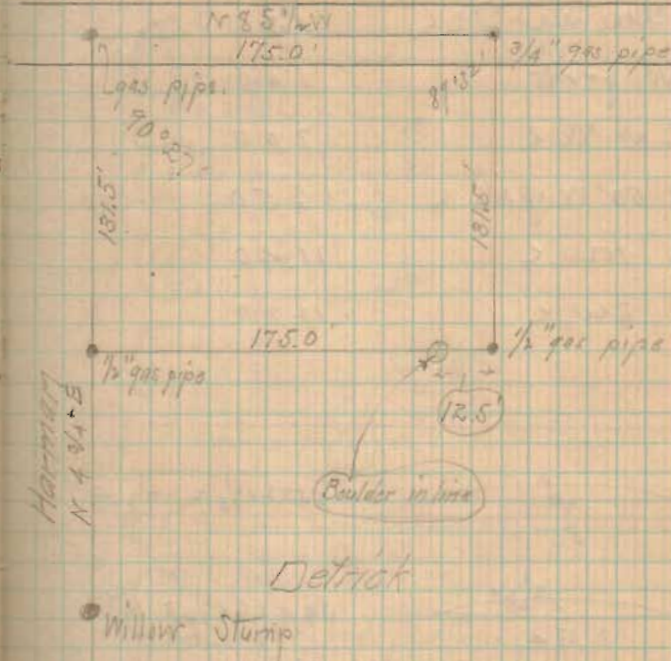 N 85 1/2 W
175.0'
3/4" gas pipe
gas pipe
90° 27'
131.5'
131.5'
175.0'
1/2" gas pipe
1/2" gas pipe
12.5'
Boulder in line
Harman
N 4 3/4 E
Detrick
Willow Stump